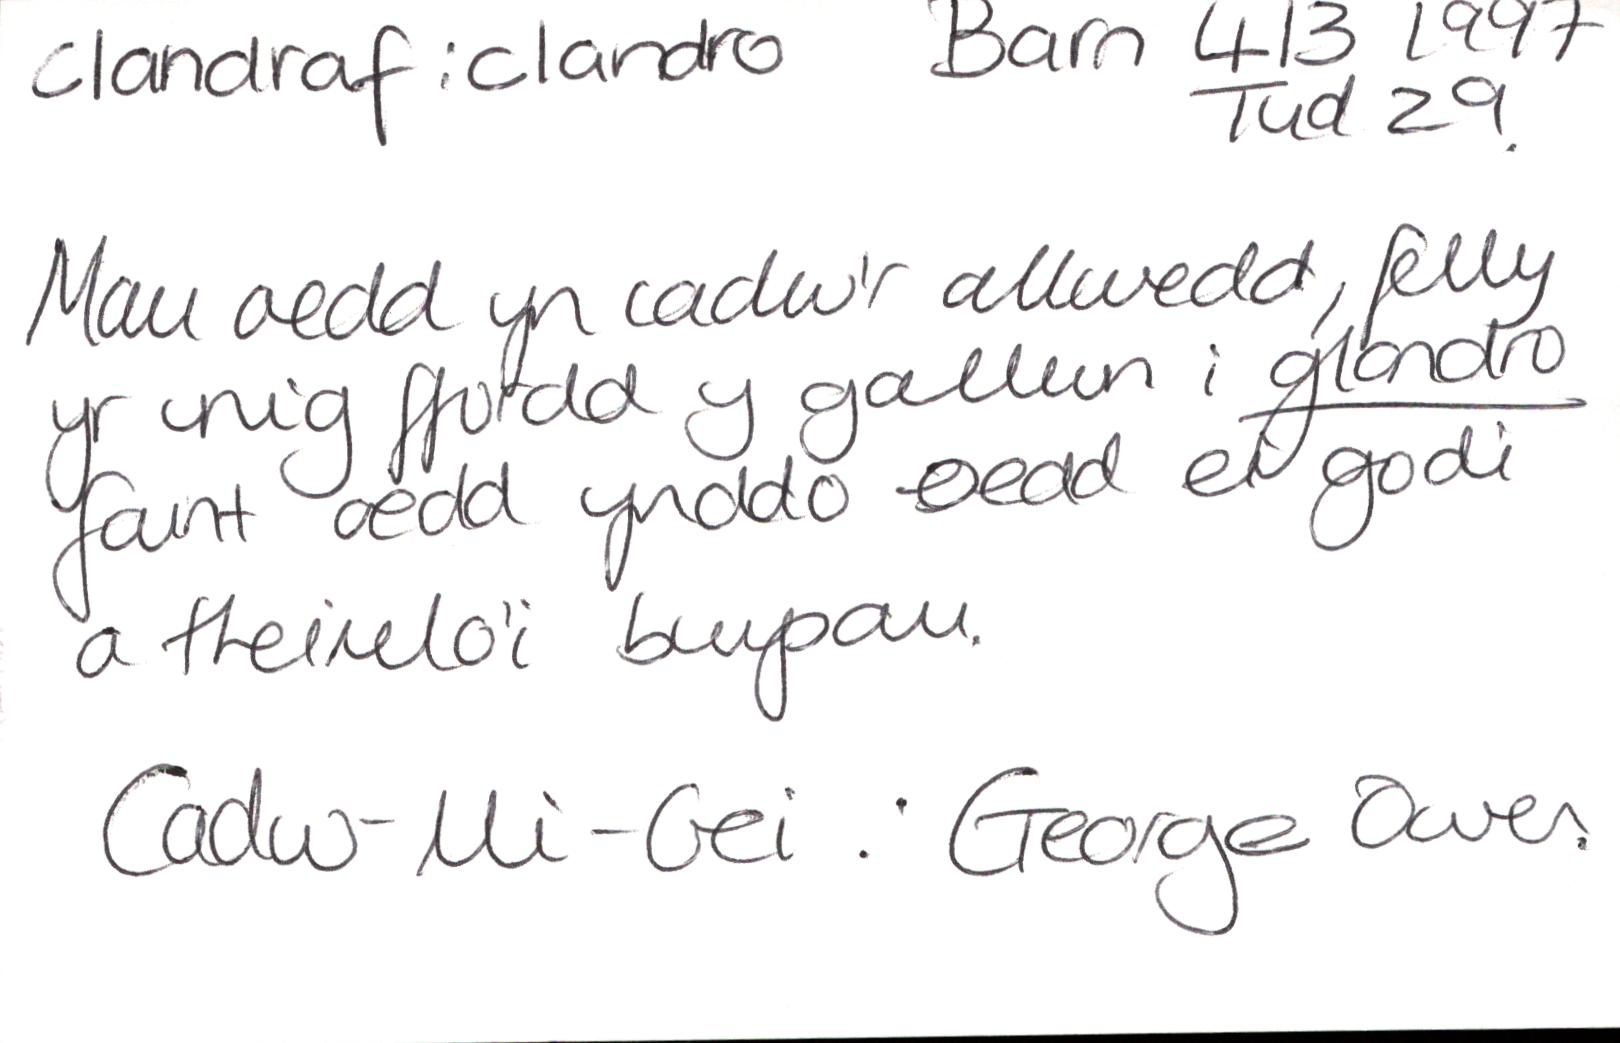 clandraf : clandro Barn 413 1997
Tud 29.
Mam oedd yn cadw'r allwedd, felly
yr unig ffordd y gallwn i glandro
faint oedd ynddo oedd ei godi
a theimlo'i bwysau.
Cadw-Mi-Gei : George Owen.